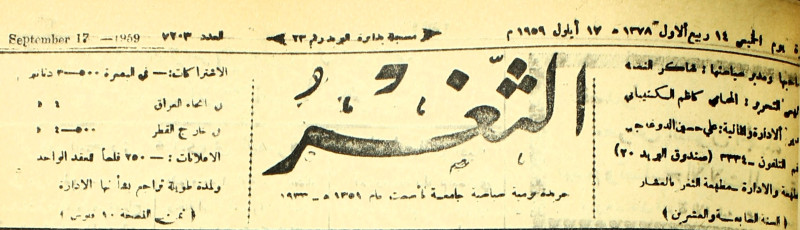 يوم الخميس ١٤ ربيع الاول ١٣٧٨ ه ١٧ أيلول ١٩٥٩ م
مسجلة بدائرة البريد رقم ٢٣
العدد ٧٢٠٣
September 17 —1959
صاحبها ومدير سياستها : شاكر النعمة
رئيس التحرير : المحامي كاظم
مدير الادارة والمالية : علي حسين
رقم التلفون — ٣٣٣٤ (صندوق البريد ٢٠)
المطبعة والادارة — مطبعة الثغر بالعشار
( السنة السابعة والعشرين )
الثغر
جريدة يومية سياسية جامعة تأسست عام ١٣٥١ ه — ١٩٣٣
الاشتراكات : — في البصرة ٥٠٠—٣ دنانير
في انحاء العراق ٤ د
في خارج القطر ٥٠٠—٤ د
الاعلانات : — ٢٥٠ فلساً للعقد الواحد
ولمدة طويلة تراجع بشأنها الادارة
( ثمن النسخة ١٠ فلوس )